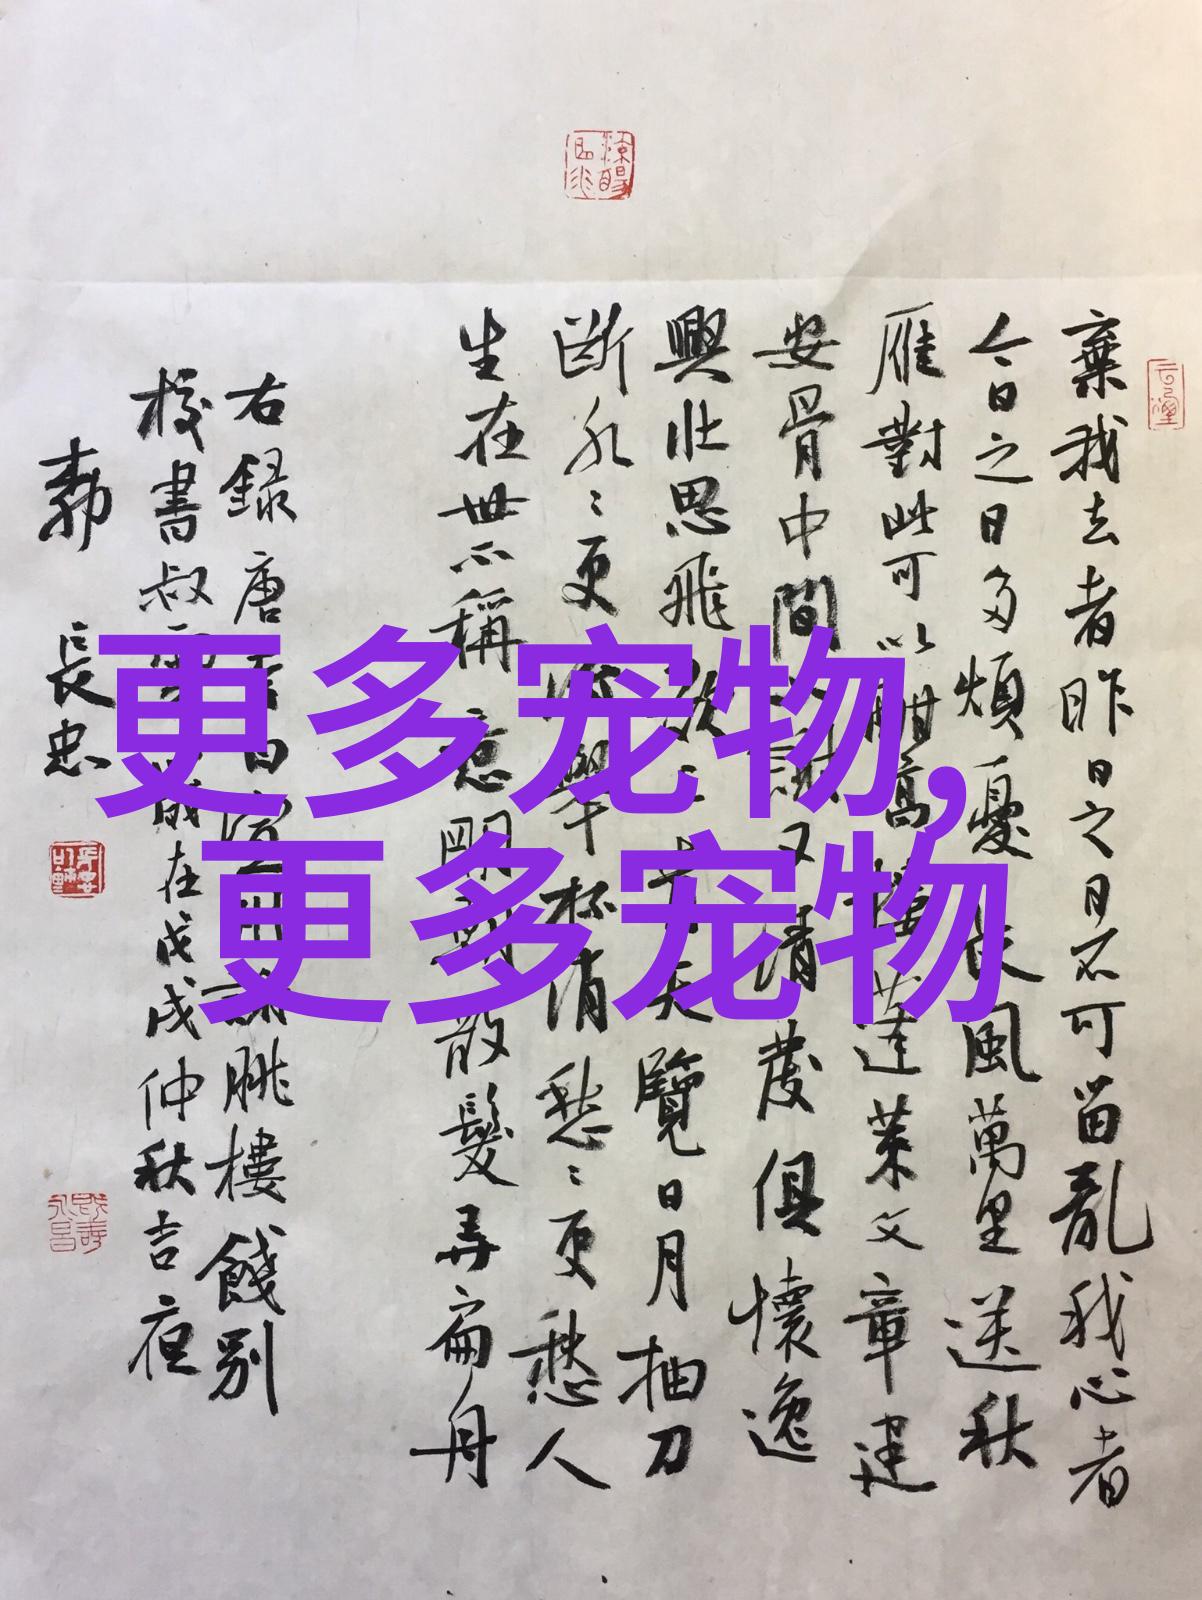 棄我去者昨日之日不可留亂我心者
今日之日多煩憂長風萬里送秋
雁對此可以酣高樓蓬萊文章建
安骨中間小謝又清發俱懷逸
興壯思飛欲上青天覽日月抽刀
斷水〻更流舉杯消愁〻更愁人
生在世不稱意明朝散髮弄扁舟
右録唐李白宣州謝朓樓餞別
校書叔雲歲在戊戌仲秋吉夜
長忠
更多宠物,
更多宠物